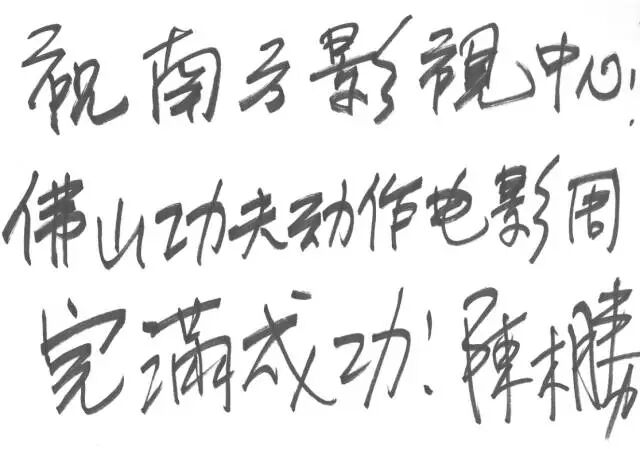 祝南方影視中心!
佛山功夫动作电影周
完滿成功!陳木勝